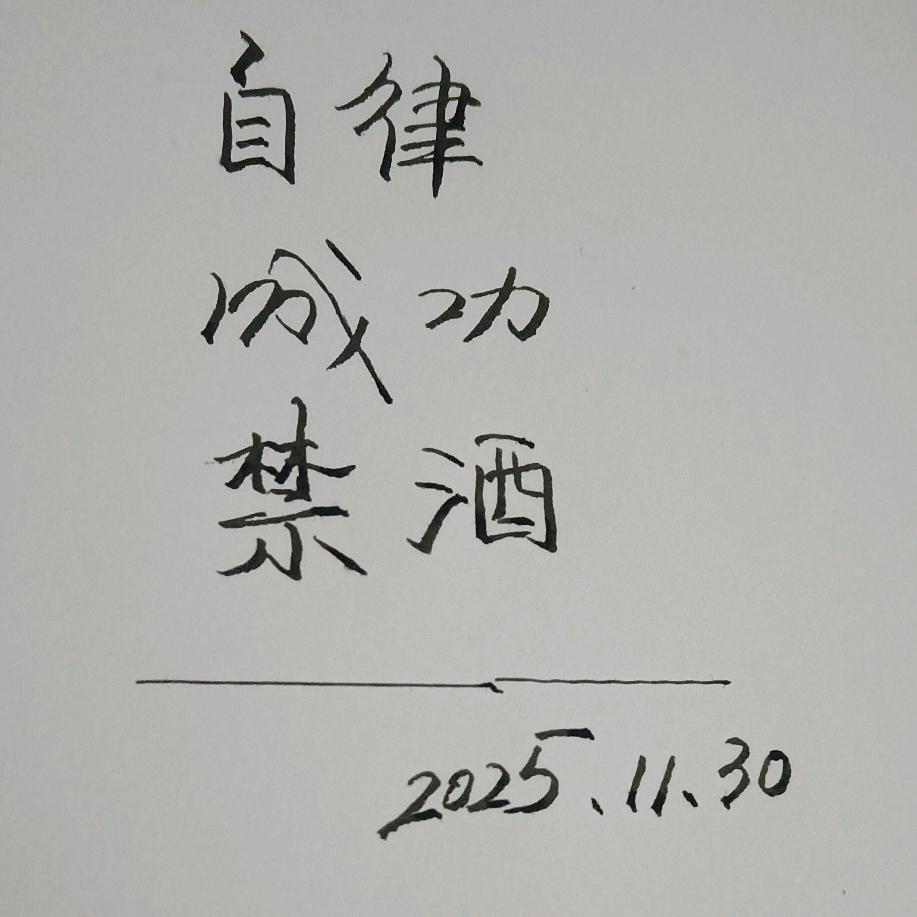 自律
成功
禁酒
2025.11.30